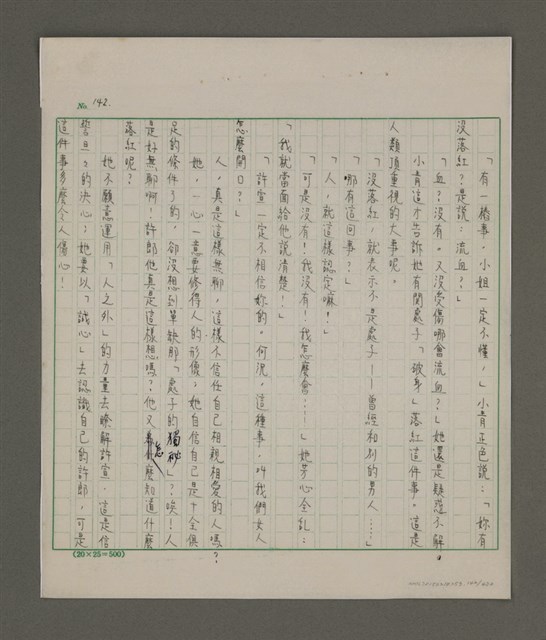 No. 142.
「有一樁事，小姐一定不懂，」小青正色說：「妳有
沒落紅？是說：流血？」
「血？沒有。又沒受傷哪會流血？」她還是疑惑不解。
小青這才告訴她有關處子「破身」落紅這件事。這是
人類頂重視的大事呢。
「沒落紅，就表示不是處子——曾經和別的男人……」
「哪有這回事？」
「人，就這樣認定嘛！」
「可是沒有！我沒有！我怎麼會…」她芳心全亂：
「我就當面給他說清楚！」
「許宣一定不相信妳的。何況，這種事，叫我們女人
怎麼開口？」
人，真是這樣無聊，這樣不信任自己相親相愛的人嗎？
她，一心一意要修得人的形像；她自信自己是十全俱
足的條件了的，卻沒想到單缺那「處子的獨秘」？唉！人
是好無聊啊！許郎他真是這樣想嗎？他又怎麼知道什麼
落紅呢？
她不願意運用「人之外」的力量去瞭解許宣；這是信
誓旦旦的決心；她要以「誠心」去認識自己的許郎，可是
這件事多麼令人傷心！
(20×25=500)